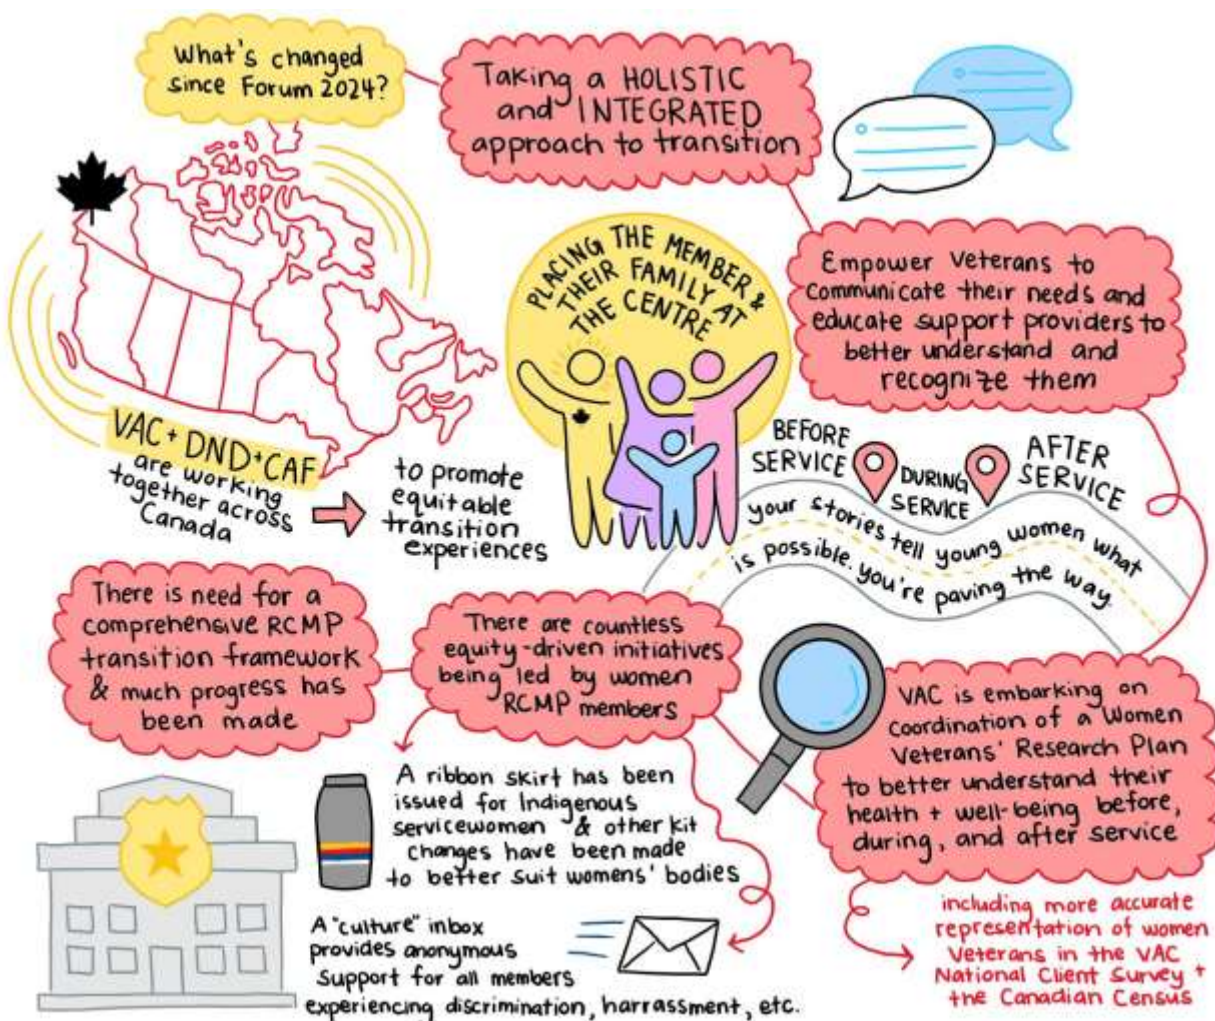 What's changed
since Forum 2024?
Taking a HOLISTIC
and INTEGRATED
approach to transition
PLACING THE MEMBER &
THEIR FAMILY AT
THE CENTRE
Empower Veterans to
communicate their needs and
educate support providers to
better understand and
recognize them
VAC + DND + CAF
are working
together across
Canada
to promote
equitable
transition
experiences
BEFORE
SERVICE
DURING
SERVICE
AFTER
SERVICE
your stories tell young women what
is possible. you're paving the way.
There is need for a
comprehensive RCMP
transition framework
& much progress has
been made
There are countless
equity-driven initiatives
being led by women
RCMP members
VAC is embarking on
coordination of a Women
Veterans' Research Plan
to better understand their
health + well-being before,
during, and after service
A ribbon skirt has been
issued for Indigenous
servicewomen & other kit
changes have been made
to better suit womens' bodies
A "culture" inbox
provides anonymous
support for all members
experiencing discrimination, harrassment, etc.
including more accurate
representation of women
Veterans in the VAC
National Client Survey +
the Canadian Census